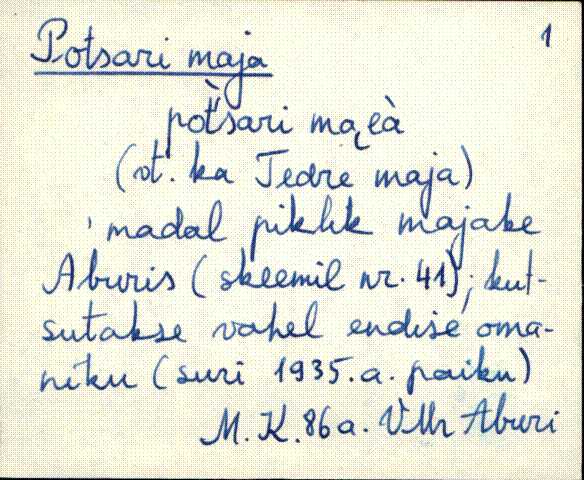 Potsari maja 1
pòt'sari ma̮eà
(vt. ka Tedre maja)
madal piklik majake
Aburis (skeemil nr. 41); kut-
sutakse vahel endise oma-
niku (suri 1935.a. paiku)
M.K. 86a. VMr Aburi